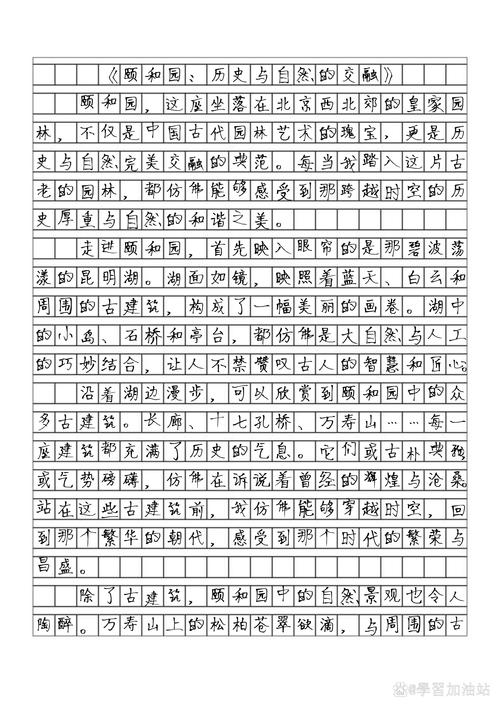 《颐和园：历史与自然的交融》
颐和园，这座坐落在北京西北郊的皇家园
林，不仅是中国古代园林艺术的瑰宝，更是历
史与自然完美交融的典范。每当我踏入这片古
老的园林，都仿佛能够感受到那跨越时空的历
史厚重与自然的和谐之美。
走进颐和园，首先映入眼帘的是那碧波荡
漾的昆明湖。湖面如镜，映照着蓝天、白云和
周围的古建筑，构成了一幅美丽的画卷。湖中
的小岛、石桥和亭台，都仿佛是大自然与人工
的巧妙结合，让人不禁赞叹古人的智慧和匠心。
沿着湖边漫步，可以欣赏到颐和园中的众
多古建筑。长廊、十七孔桥、万寿山……每一
座建筑都充满了历史的气息。它们或古朴典雅
或气势磅礴，仿佛在诉说着曾经的辉煌与沧桑
站在这些古建筑前，我仿佛能够穿越时空，回
到那个繁华的朝代，感受到那个时代的繁荣与
昌盛。
除了古建筑，颐和园中的自然景观也令人
陶醉。万寿山上的松柏苍翠欲滴，与周围的古
@學習加油站